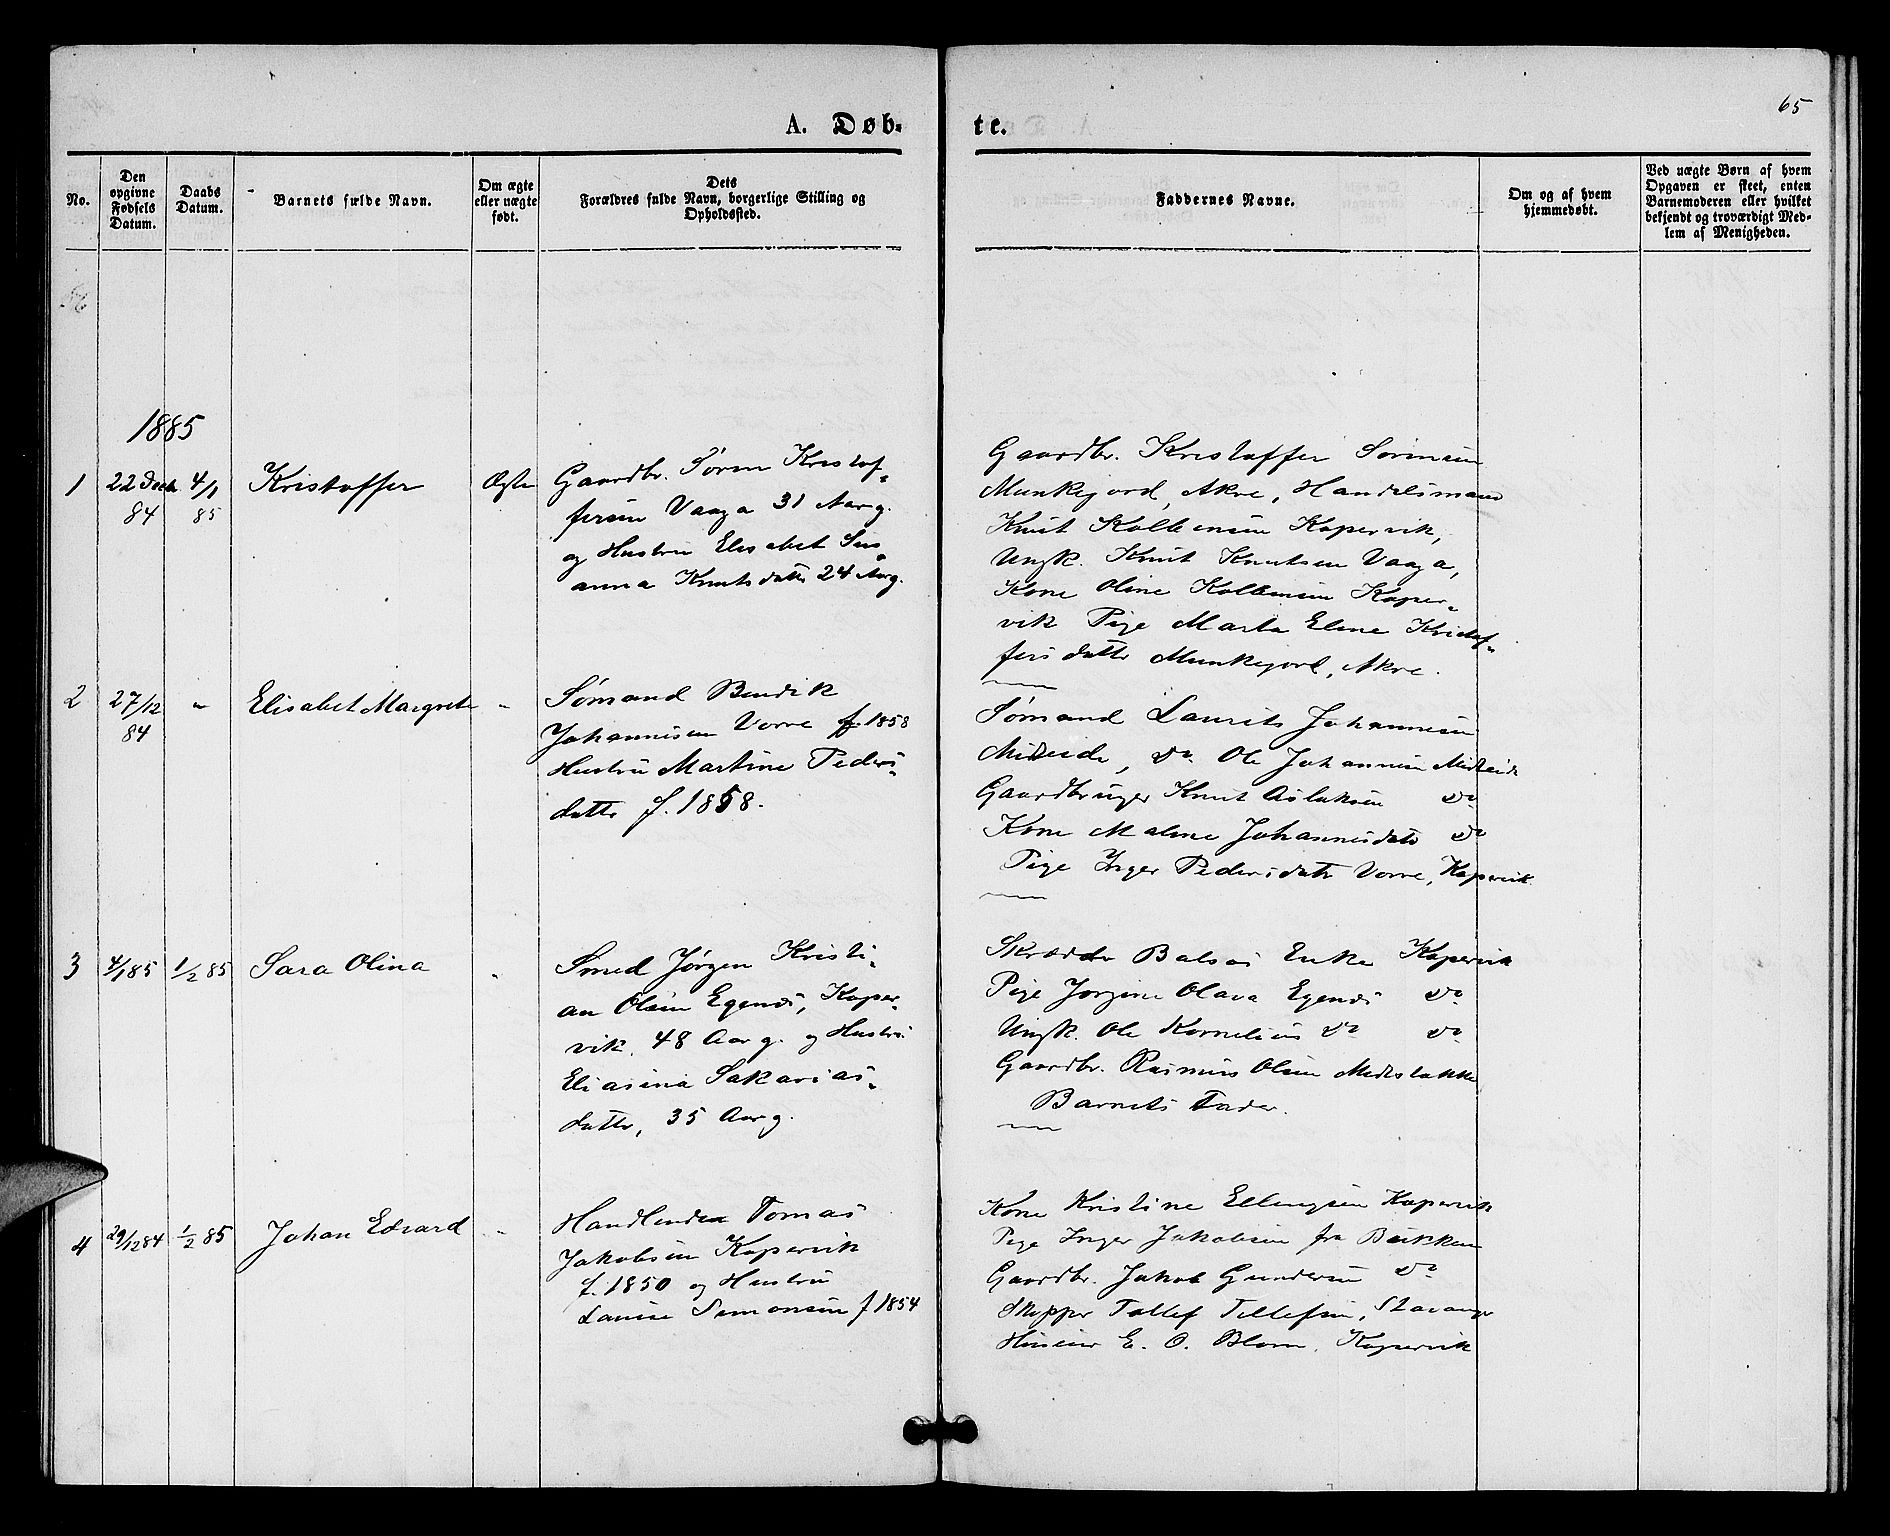 65
A. Døb-
te.
No.
Den
opgivne
Fødsels
Datum.
Daabs
Datum.
Barnets fulde Navn.
Om ægte
eller uægte
født.
Dets
Forældres fulde Navn, borgerlige Stilling og
Opholdssted.
Faddernes Navne.
Om og af hvem
hjemmedøbt.
Ved uægte Børn af hvem
Opgaven er skeet, enten
Barnemoderen eller hvilket
bekjendt og troværdigt Med-
lem af Menigheden.
1885
1
22 Decb
84
4/1
85
Kristoffer
Ægte
Gaardbr. Søren Kristof-
fersen Vaaga 31 Aar g.
og Hustru Elisabet Sus-
anna Knutsdatter 24 Aar g.
Gaardbr. Kristoffer Sørensen
Munkejord, Akre, Handelsmand
Knut Kolbensen Kopervik,
Ungk. Knut Knutsen Vaaga,
Kone Oline Kolbensen Koper-
vik Pige Marta Elene Kristof-
fersdatter Munkejord, Akre.
2
27/12
84
"
Elisabet Margrete
"
Sømand Bendik
Johannesen Vorre f. 1858
Hustru Martine Peders-
datter f. 1858.
Sømand Laurits Johannesen
Midteide, do. Ole Johannesen Midteide
Gaardbruger Knut Aslaksen do
Kone Malene Johannesdatr do
Pige Inger Pedersdatter Vorre, Kopervik.
3
4/1 85
1/2 85
Sara Olina
"
Smed Jørgen Kristi-
an Olsen Egenes, Koper-
vik. 48 Aar g. og Hustru
Eliasina Sakarias-
datter, 35 Aar g.
Skrædder Enke Kopervik
Pige Jorgine Olava Egenes do.
Ungk. Ole Kornelius do do.
Gaardbr. Rasmus Olsen Medstokke
Barnets Fader.
4
29/12 84
1/2 85
Johan Edvard
"
Handlende Tomas
Jakobsen Kopervik
f. 1850 og Hustru
Lanise Simonsen f 1854
Kone Kristine Ellingsen Kopervik
Pige Inger Jakobsen fra Bukken
Gaardbr. Jakob Gundersen do.
Skipper Tollef Tollefsen, Stavanger
Huseier E. O. Blom, Kopervik